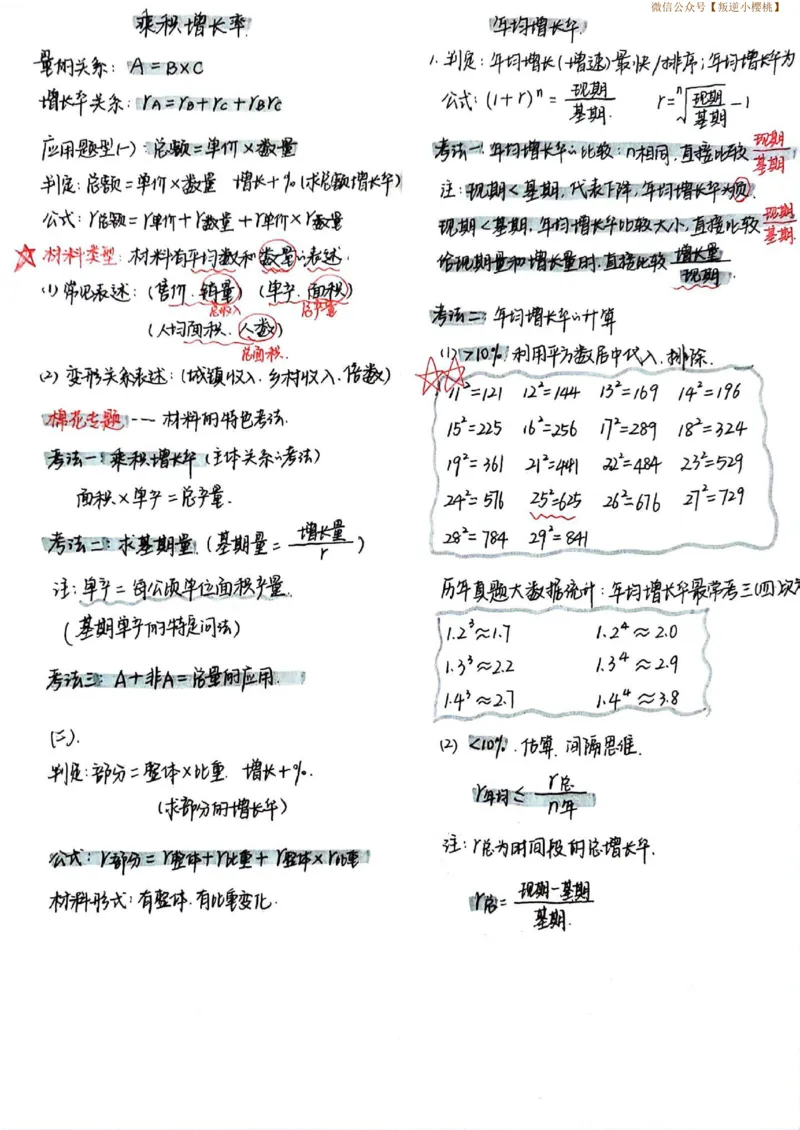 微信公众号【叛逆小樱桃】
乘积增长率
量的关系: A=B×C
增长率关系: rA=rB+rC+rBrC
应用题型(一): 总额=单价×数量
判定:总额=单价×数量 增长+%(求总额增长率)
公式: r总额=r单价+r数量+r单价×r数量
☆材料类型:材料有平均数和数量的表述.
(1)常见表述:(售价.销量) (单产.面积)
总收入 总产量
(人均面积.人数)
总面积.
(2)变形关系表述:(城镇收入.乡村收入.倍数)
棉花专题---材料的特色考法.
考法一:乘积增长率(主体关系的考法)
面积×单产=总产量.
考法二:求基期量.(基期量=增长量/r)
注:单产=每公顷单位面积产量.
(基期单产的特定问法)
考法三:A+非A=总量的应用.
(二).
判定:部分=整体×比重. 增长+%.
(求部分的增长率)
公式: r部分=r整体+r比重+r整体×r比重
材料形式:有整体.有比重变化.
年均增长率.
1.判定:年均增长(增速)最快/排序;年均增长率为
公式:(1+r)ⁿ=现期/基期. r=ⁿ√(现期/基期)-1
考法一:年均增长率的比较:n相同,直接比较现期/基期
注:现期<基期,代表下降,年均增长率为负.
现期<基期,年均增长率比较大小,直接比较现期/基期.
给现期量和增长量时,直接比较增长量/现期.
考法二:年均增长率的计算
(1)>10%.利用平方数居中代入.排除.
☆☆11²=121 12²=144 13²=169 14²=196
15²=225 16²=256 17²=289 18²=324
19²=361 21²=441 22²=484 23²=529
24²=576 25²=625 26²=676 27²=729
28²=784 29²=841
历年真题大数据统计:年均增长率最常考三(四)次
1.2³≈1.7 1.2⁴≈2.0
1.3³≈2.2 1.3⁴≈2.9
1.4³≈2.7 1.4⁴≈3.8
(2)<10%.估算.间隔思维.
r年均≤r总/n年
注:r总为时间段的总增长率.
r总=现期-基期/基期.